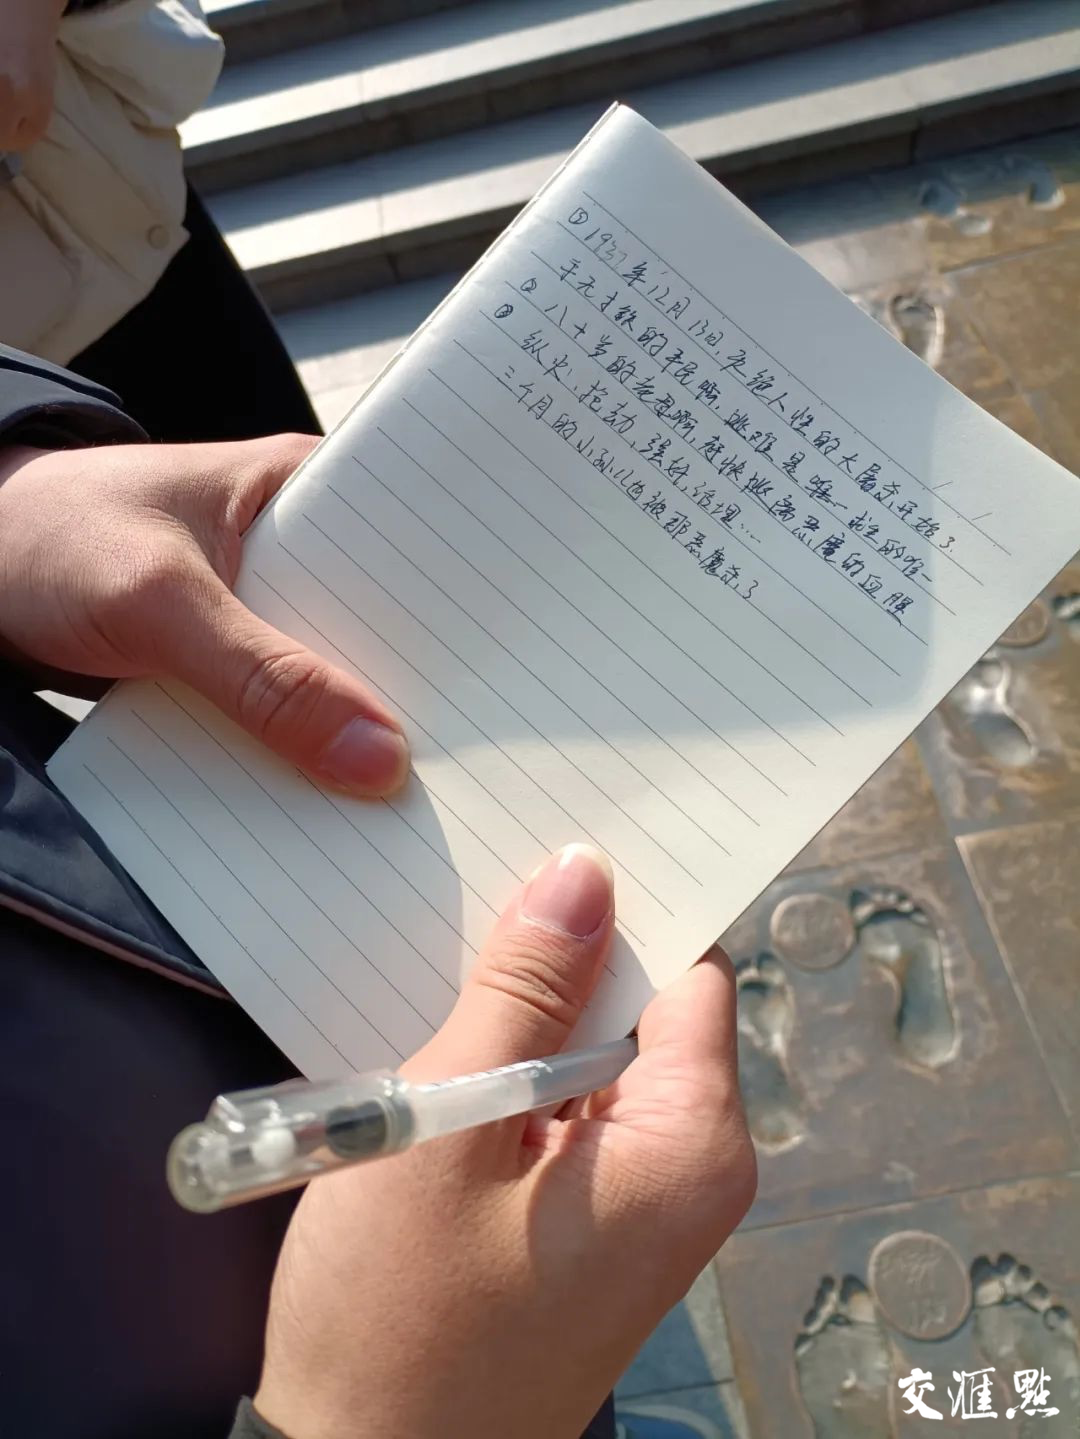 ① 1937年12月13日,灭绝人性的大屠杀开始了.
手无寸铁的平民啊,逃难是唯一求生的唯一
② 八十岁的老母啊,赶快逃离恶魔的血腥
③ 纵火、抢劫、强奸、活埋……
三个月的小孙儿也被那恶魔杀了
交滙點